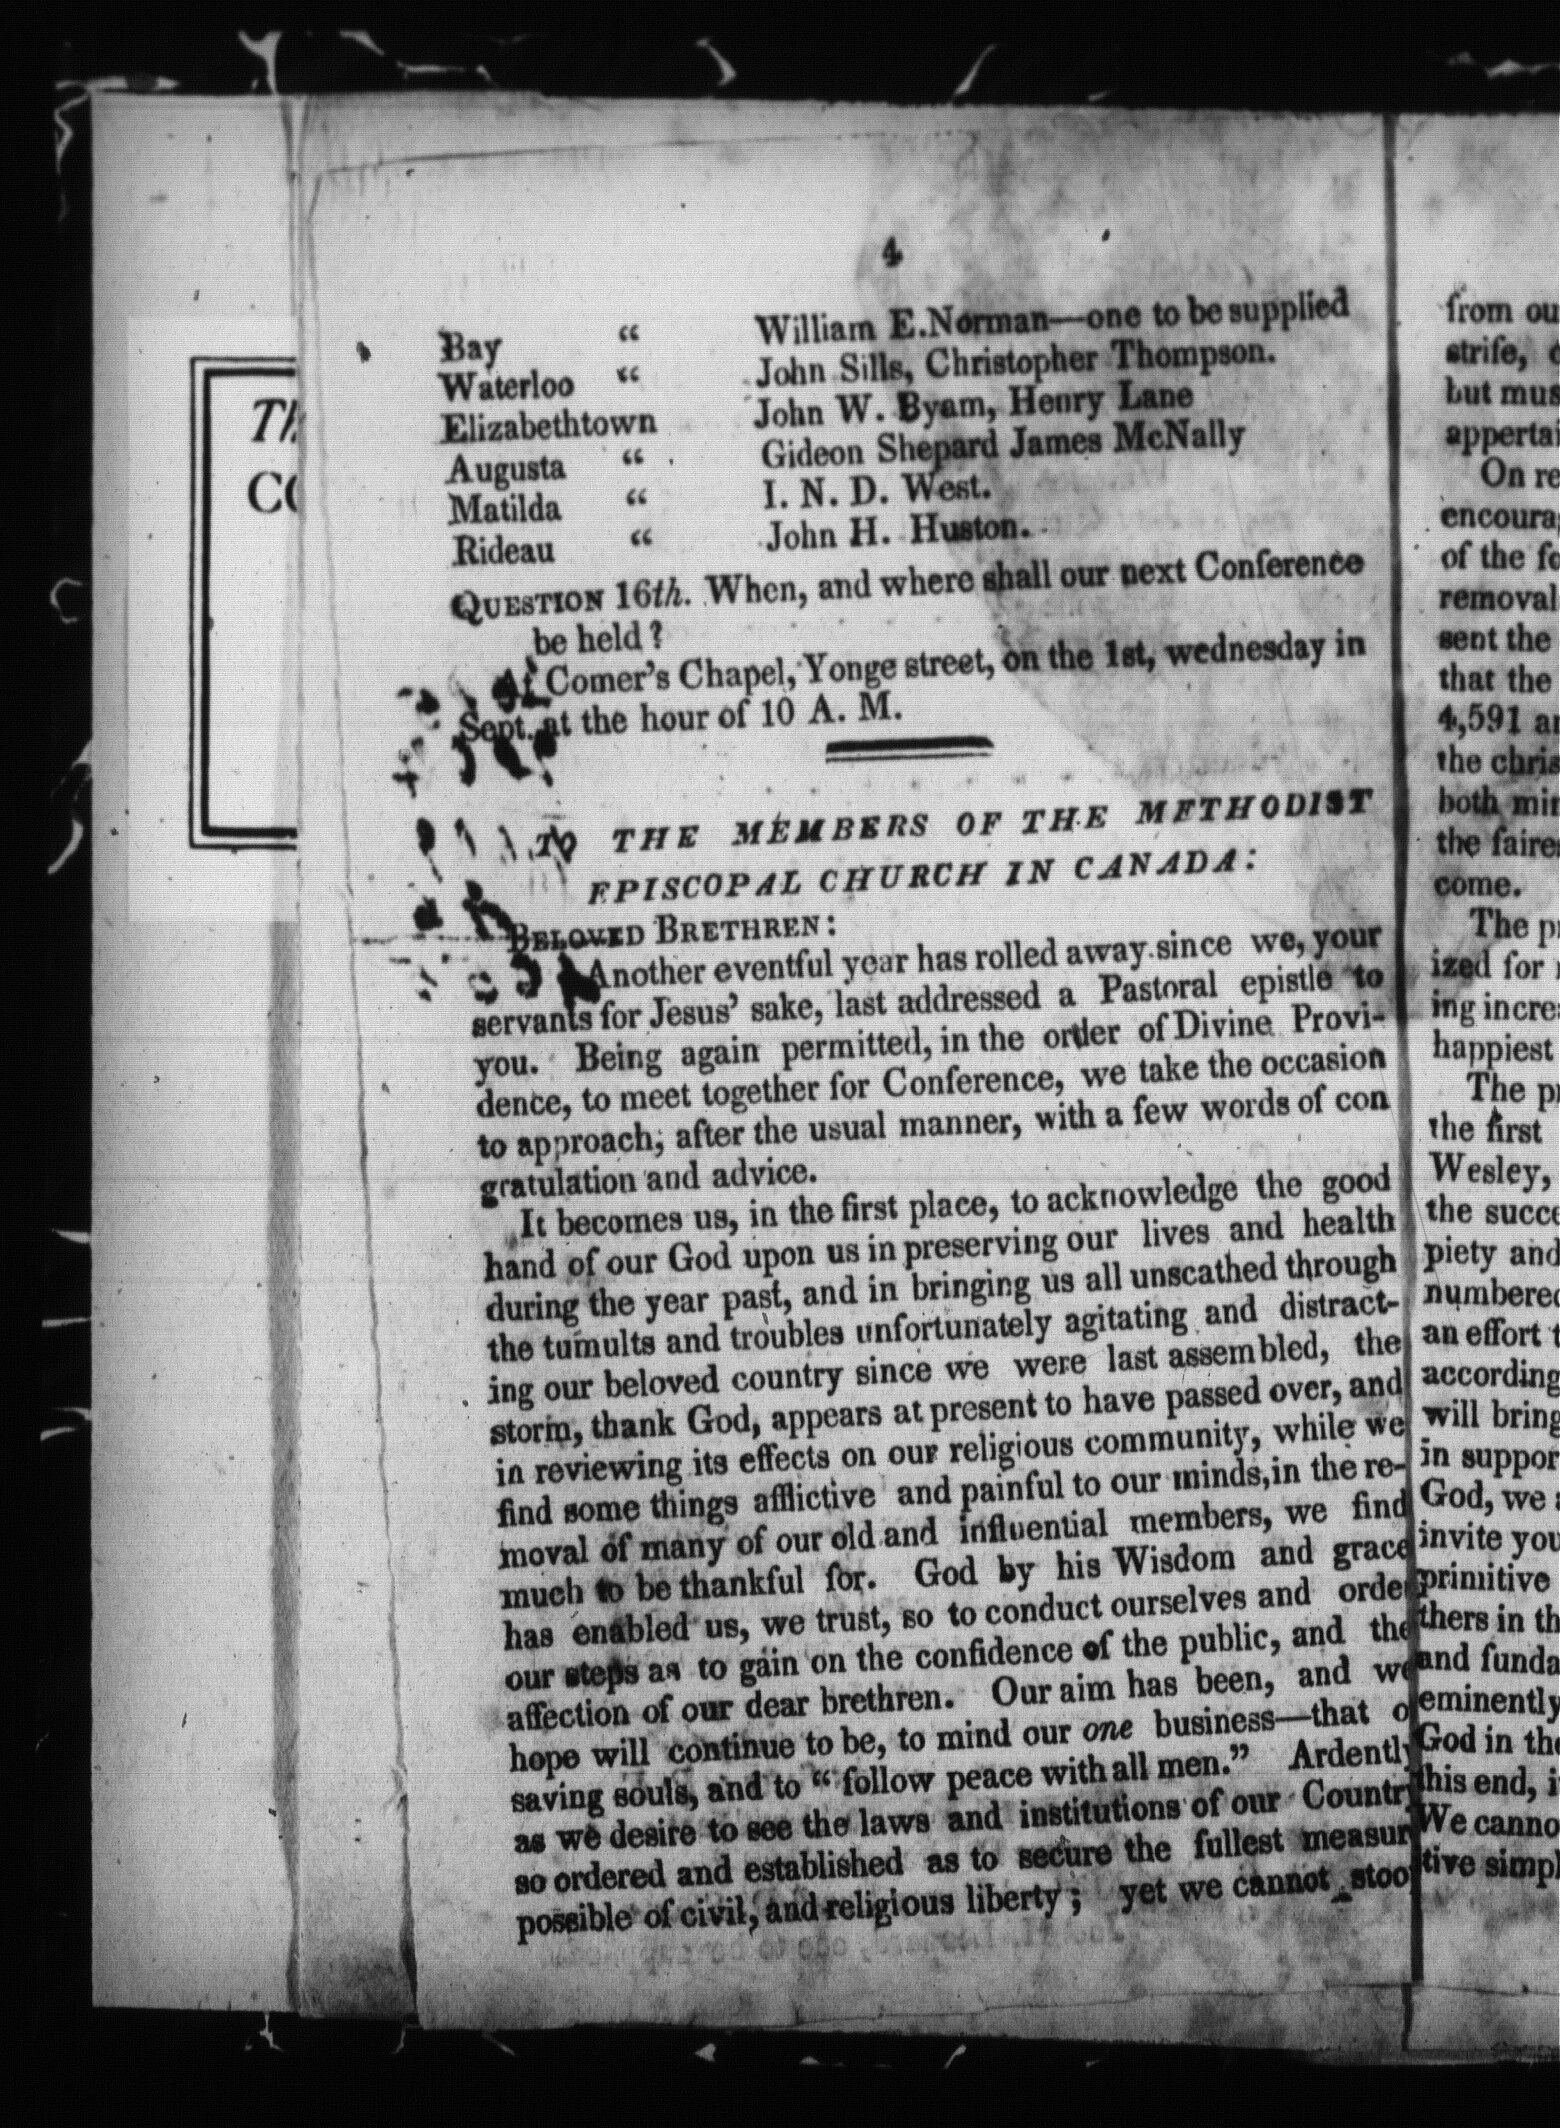 Th
CO
4
Bay “ William E. Norman—one to be supplied
Waterloo “ John Sills, Christopher Thompson.
Elizabethtown John W. Byam, Henry Lane
Augusta “ Gideon Shepard James McNally
Matilda “ I. N. D. West.
Rideau “ John H. Huston.
QUESTION 16th. When, and where shall our next Conference
be held?
At Comer's Chapel, Yonge street, on the 1st, wednesday in
Sept. at the hour of 10 A. M.
TO THE MEMBERS OF THE METHODIST
EPISCOPAL CHURCH IN CANADA:
BELOVED BRETHREN:
Another eventful year has rolled away since we, your
servants for Jesus' sake, last addressed a Pastoral epistle to
you. Being again permitted, in the order of Divine Provi-
dence, to meet together for Conference, we take the occasion
to approach, after the usual manner, with a few words of con
gratulation and advice.
It becomes us, in the first place, to acknowledge the good
hand of our God upon us in preserving our lives and health
during the year past, and in bringing us all unscathed through
the tumults and troubles unfortunately agitating and distract-
ing our beloved country since we were last assembled, the
storm, thank God, appears at present to have passed over, and
in reviewing its effects on our religious community, while we
find some things afflictive and painful to our minds, in the re-
moval of many of our old and influential members, we find
much to be thankful for. God by his Wisdom and grace
has enabled us, we trust, so to conduct ourselves and order
our steps as to gain on the confidence of the public, and the
affection of our dear brethren. Our aim has been, and we
hope will continue to be, to mind our one business—that o
saving souls, and to “ follow peace with all men.” Ardently
as we desire to see the laws and institutions of our Country
so ordered and established as to secure the fullest measur
possible of civil, and religious liberty; yet we cannot stoo
from ou
strife, o
but mus
appertai
On re
encourag
of the fo
removal
sent the
that the
4,591 an
the chris
both min
the faires
come.
The pr
ized for
ing incre
happiest
The pr
the first
Wesley,
the succe
piety and
numbered
an effort t
according
will bring
in suppor
God, we a
invite you
primitive
thers in th
and funda
eminently
God in the
this end, i
We canno
tive simpl